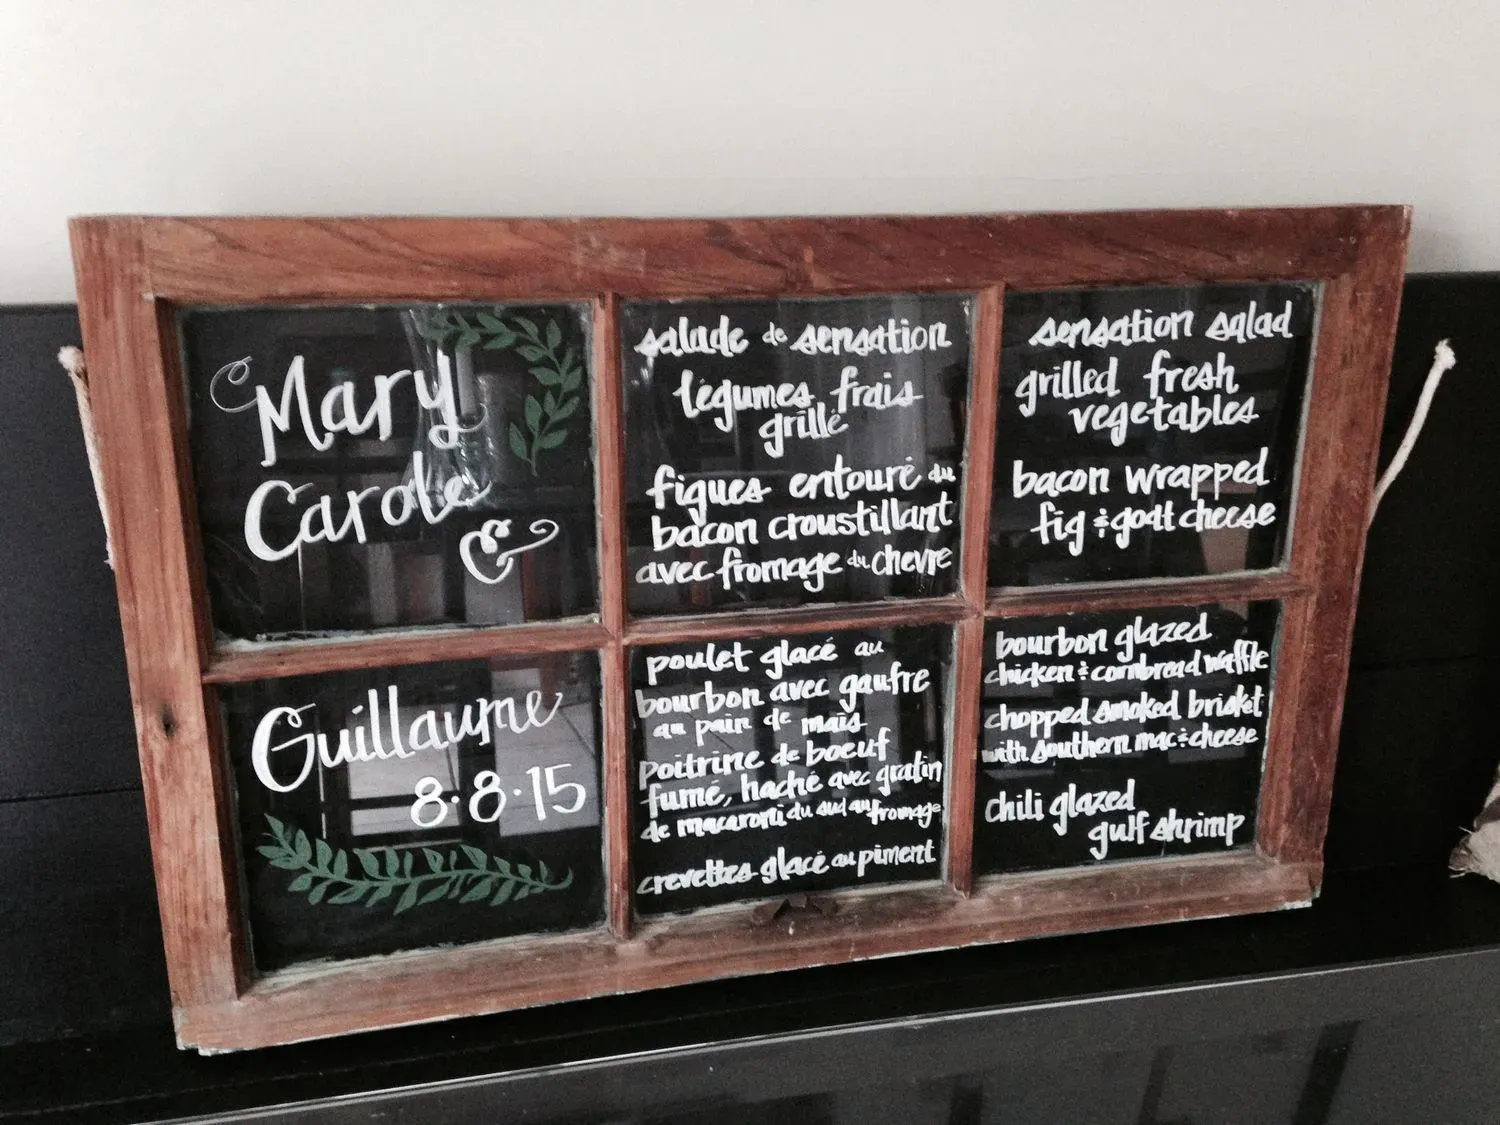 Mary
Carole
&
Guillaume
8.8.15
salade de sensation
légumes frais
grillé
figues entouré du
bacon croustillant
avec fromage du chevre
poulet glacé au
bourbon avec gaufre
au pain de maïs
poitrine de boeuf
fumé, haché avec gratin
de macaroni du sud au fromage
crevettes glacé au piment
sensation salad
grilled fresh
vegetables
bacon wrapped
fig & goat cheese
bourbon glazed
chicken & cornbread waffle
chopped smoked brisket
with southern mac & cheese
chili glazed
gulf shrimp